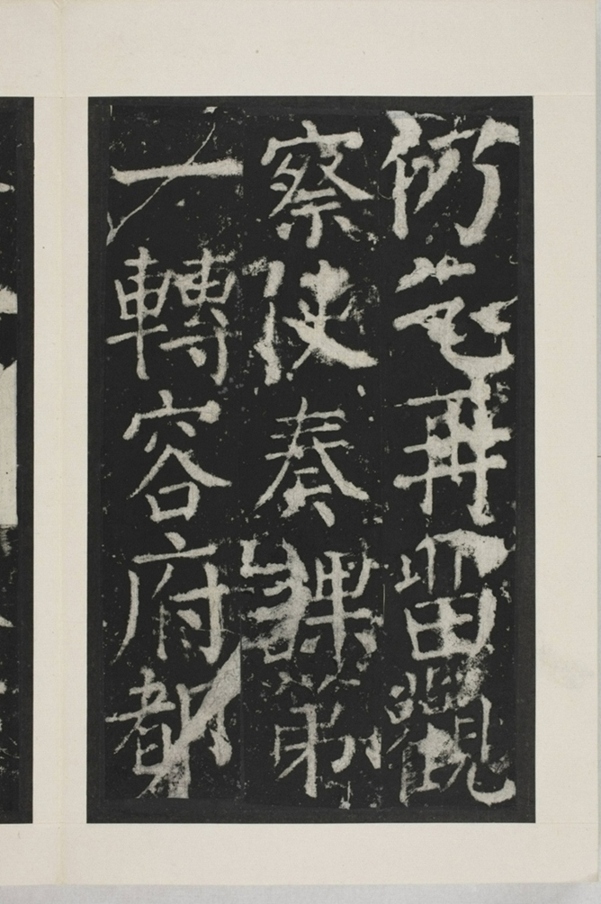 仍乞再留觀
察使奏課第
一轉容府都